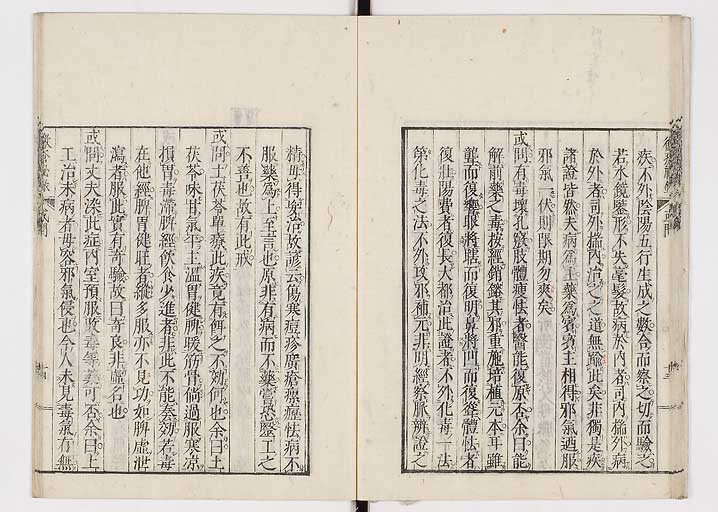 疾不外陰陽五行生成之數合而察之切而驗之
若水鏡鑒形不失毫髮故病於內者可內
於外者司外揣內治之之道無踰此矣非獨是疾
諸證皆然夫病為主藥為賓賓主相得邪氣迺服
邪氣一伏則限期勿爽矣
或問有毒壞孔竅肢體痿怯者醫能復原否余曰能
解前藥之毒按經銷鎔其邪重施培植元本耳雖
聾而復響眼將瞎而復明鼻將凹而復聳體怯者
復壯陽費者復長大都治此證者不外化毒一法
第化毒之法不外攻邪補元非明經察脈辨證之
精毋得妄治故諺云傷寒痘疹廣瘡癲癧怯病不
服藥為上至言也原非有病而不藥嘗恐醫工之
不善也故有此戒
或問土茯苓單療此疾竟有餌之不効何也余曰土
茯苓味甘氣平主溫胃健脾暖筋骨倘過服寒涼
損胃毒滯脾經飲食少進者非此不能奏効若毒
在他經脾胃健旺者縱多服亦不見功如脾虛泄
瀉者服此實有奇驗故曰奇良非虛名也
或問丈夫染此症內室預服敗毒等藥可否余曰上
工治未病者毋容邪氣侵也今人未見毒氣有無